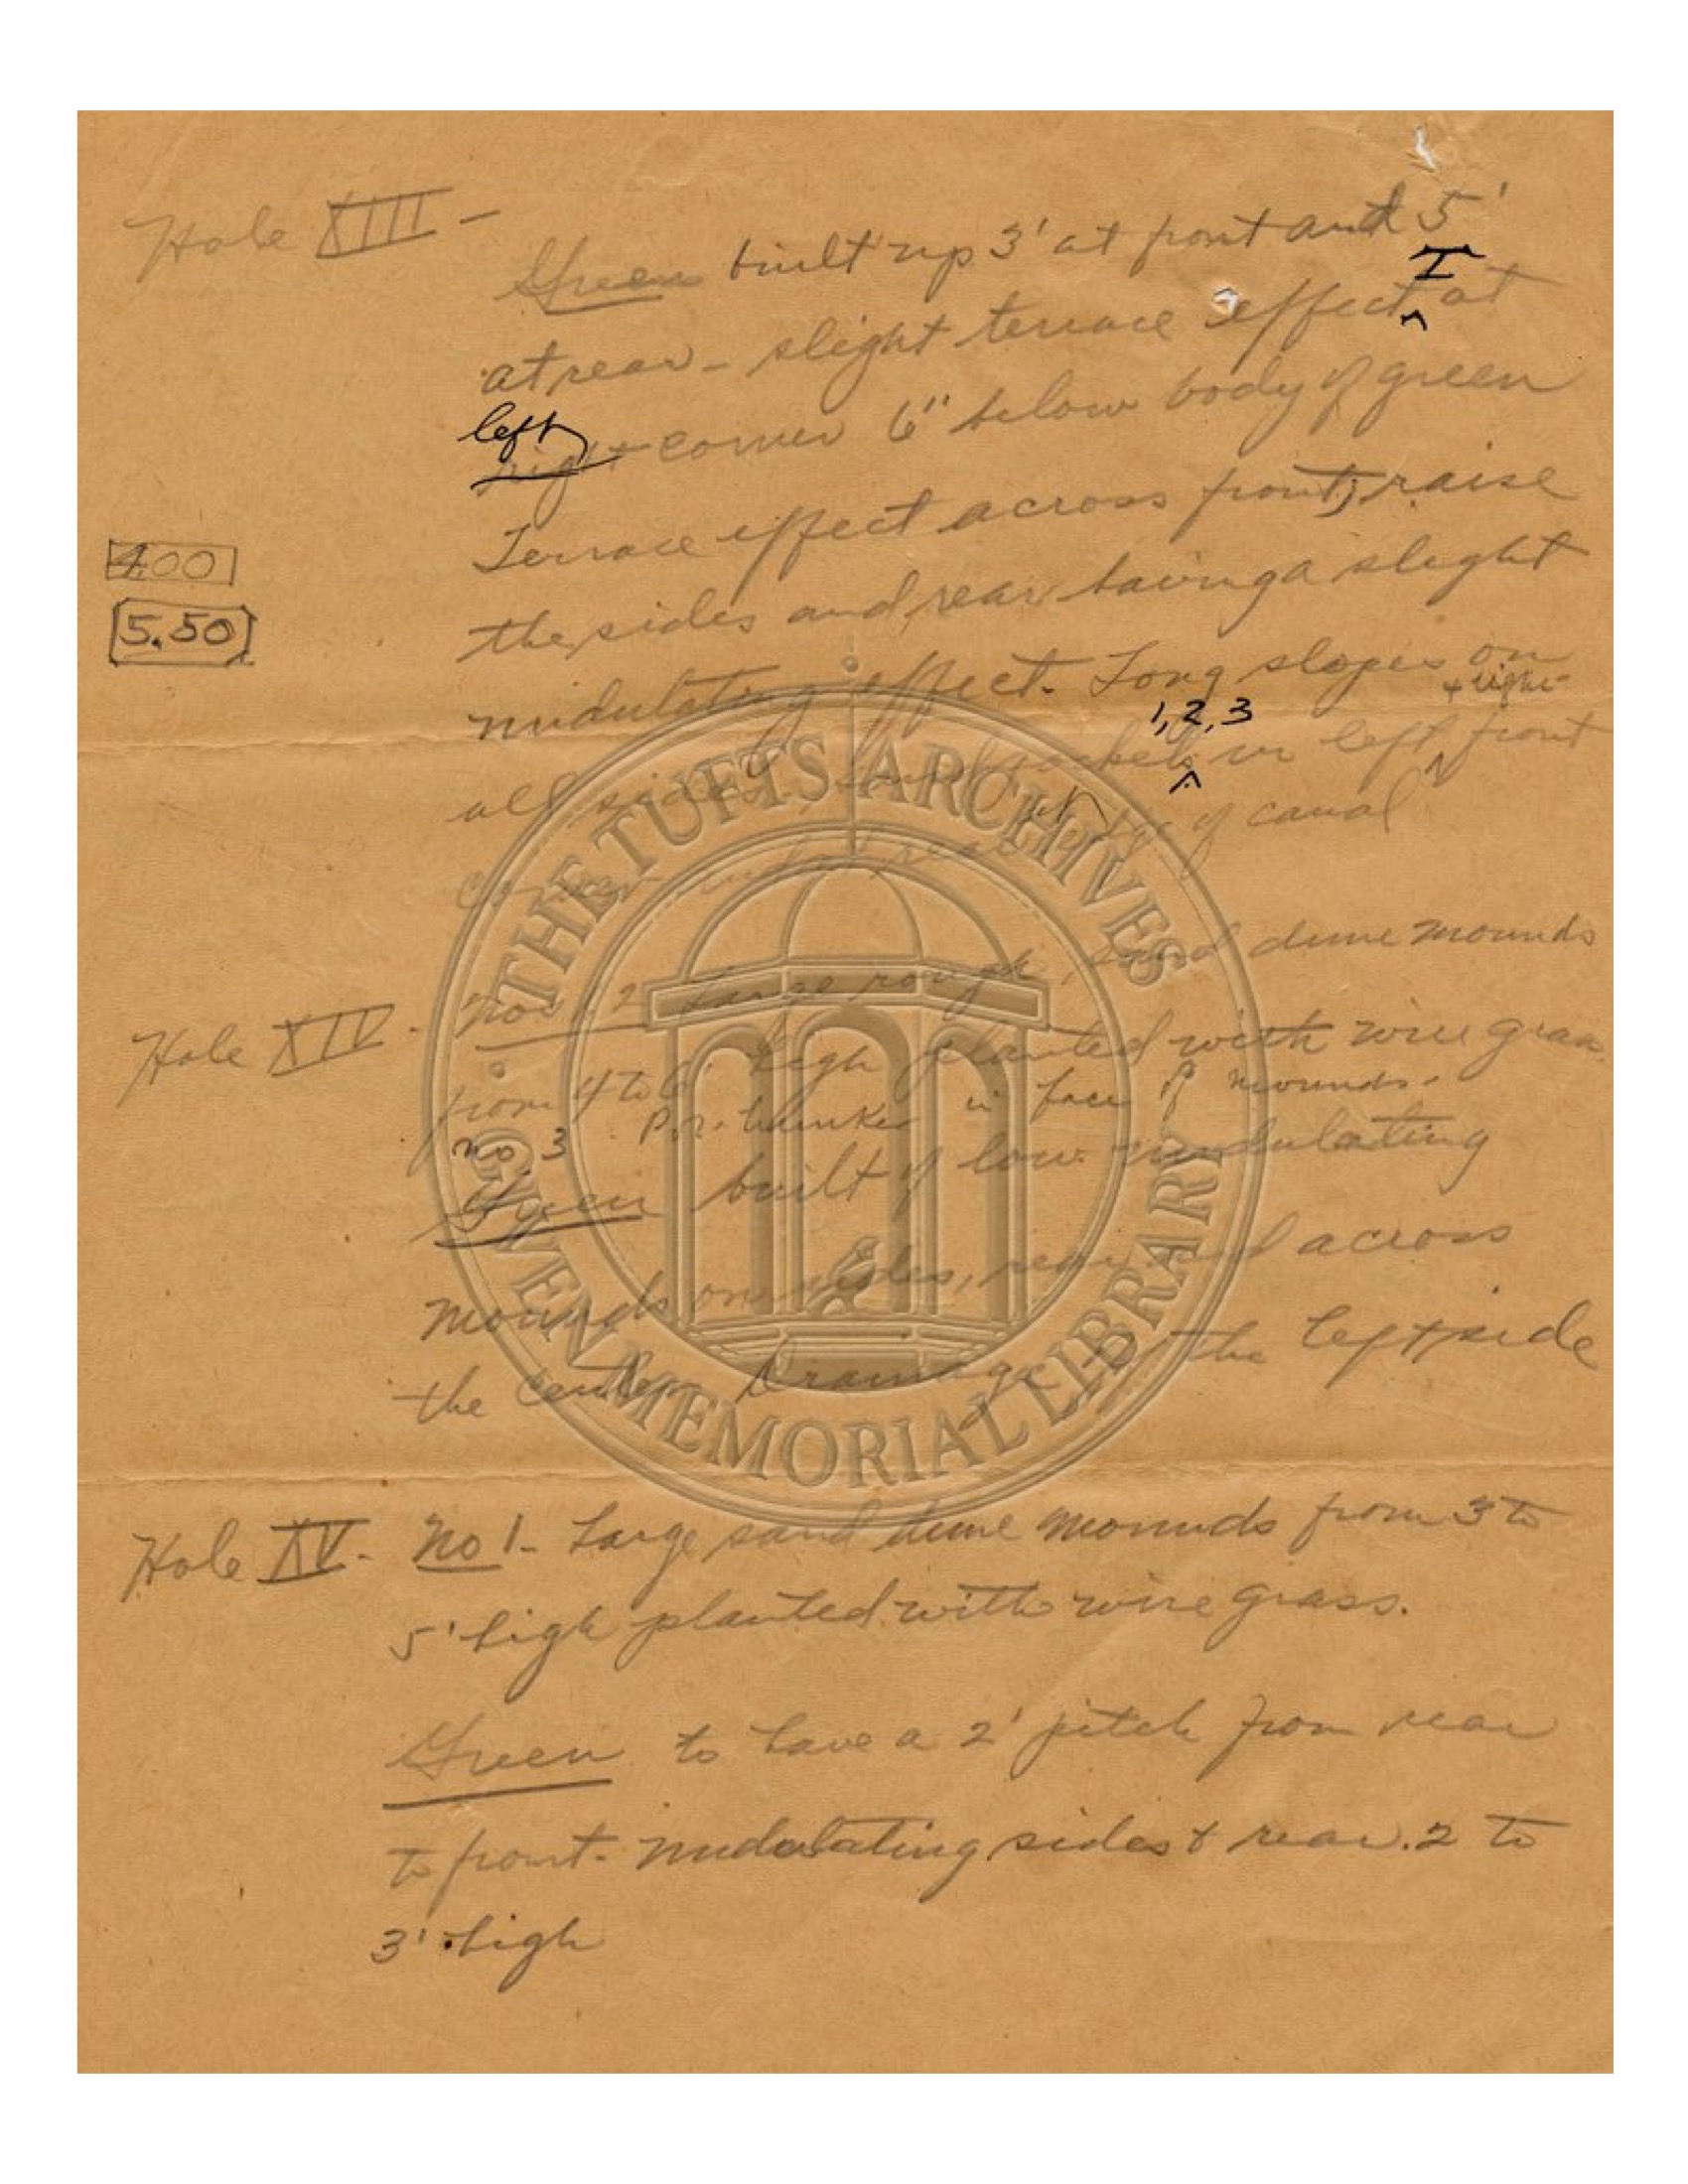 Hole XIII -
Green built up 3' at front and 5'
I
at rear - slight terrace effect at
left
right corner 6" below body of green
Terrace effect across front, raise
400
the sides and rear having a slight
5.50
undulating effect. Long slopes on
+ right
1, 2, 3
all sides pockets in left front
corner and at rear edge of canal
Hole XIV - No 1 2 Large rough sand dune mounds
from 4 to 6' high planted with wire grass.
No. 3 in face of mounds.
Green built of low undulating
mounds on sides, rear and across
the center. Drainage the left side
Hole XV - No 1 - Large sand dune mounds from 3 to
5' high planted with wire grass.
Green to have a 2' pitch from rear
to front - undulating sides & rear. 2 to
3' high
THE TUFTS ARCHIVES
GIVEN MEMORIAL LIBRARY